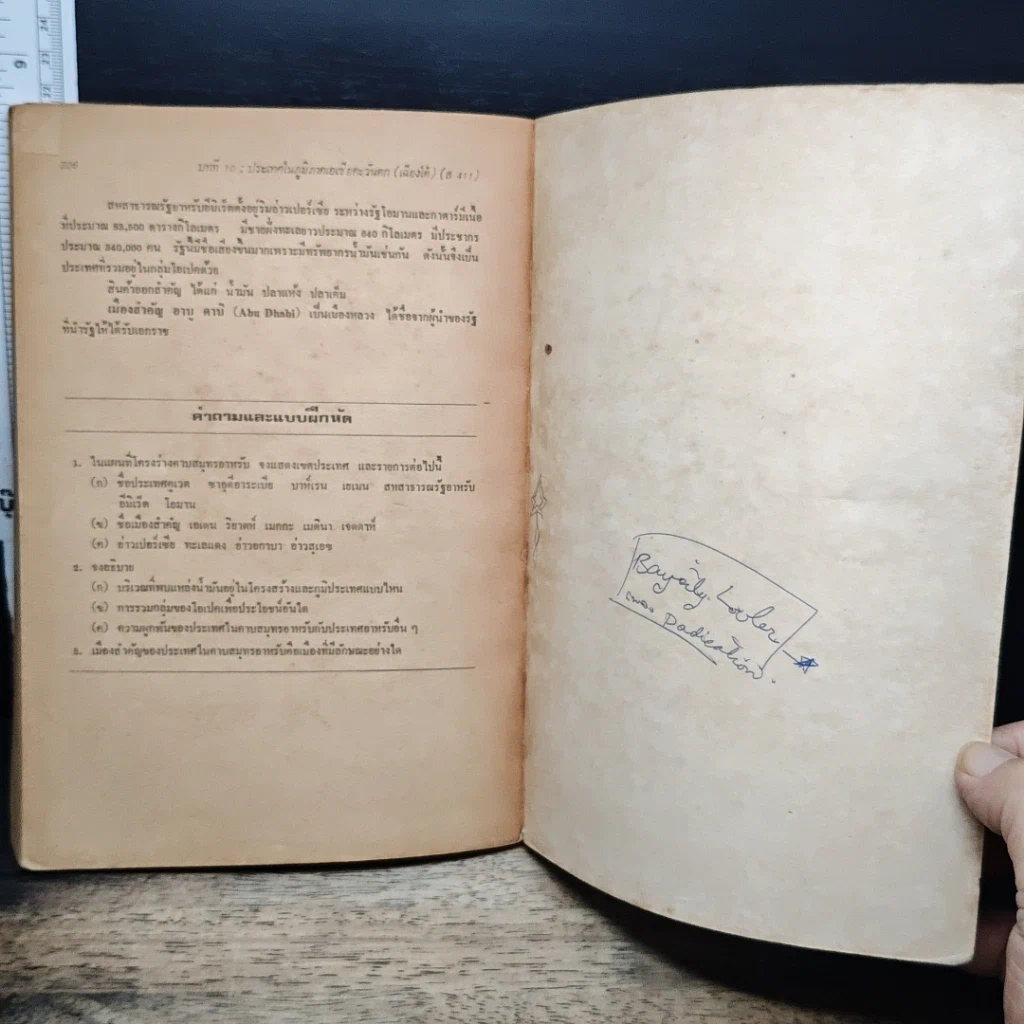 บทที่ 10 : ประเทศในภูมิภาคเอเชียตะวันตก (เฉียงใต้) (ส 411)
สหสาธารณรัฐอาหรับอีมิเร็ตตั้งอยู่ริมอ่าวเปอร์เซีย ระหว่างรัฐโอมานและกาตาร์มีเนื้อ
ที่ประมาณ 83,500 ตารางกิโลเมตร มีชายฝั่งทะเลยาวประมาณ 640 กิโลเมตร มีประชากร
ประมาณ 240,000 คน รัฐนี้มีชื่อเสียงขึ้นมากเพราะมีทรัพยากรน้ำมันเช่นกัน ดังนั้นจึงเป็น
ประเทศที่รวมอยู่ในกลุ่มโอเปคด้วย
สินค้าออกสำคัญ ได้แก่ น้ำมัน ปลาแห้ง ปลาเค็ม
เมืองสำคัญ อาบู ดาบี (Abu Dhabi) เป็นเมืองหลวง ได้ชื่อจากผู้นำของรัฐ
ที่นำรัฐให้ได้รับเอกราช
คำถามและแบบฝึกหัด
1. ในแผนที่โครงร่างคาบสมุทรอาหรับ จงแสดงเขตประเทศ และรายการต่อไปนี้
(ก) ชื่อประเทศคูเวต ซาอุดีอาระเบีย บาห์เรน เยเมน สหสาธารณรัฐอาหรับ
อีมิเร็ต โอมาน
(ข) ชื่อเมืองสำคัญ เอเดน ริยาดห์ เมกกะ เมดินา เจดดาห์
(ค) อ่าวเปอร์เซีย ทะเลแดง อ่าวอกาบา อ่าวสุเอซ
2. จงอธิบาย
(ก) บริเวณที่พบแหล่งน้ำมันอยู่ในโครงสร้างและภูมิประเทศแบบไหน
(ข) การรวมกลุ่มของโอเปคเพื่อประโยชน์อันใด
(ค) ความผูกพันของประเทศในคาบสมุทรอาหรับกับประเทศอาหรับอื่น ๆ
3. เมืองสำคัญของประเทศในคาบสมุทรอาหรับคือเมืองที่มีลักษณะอย่างใด